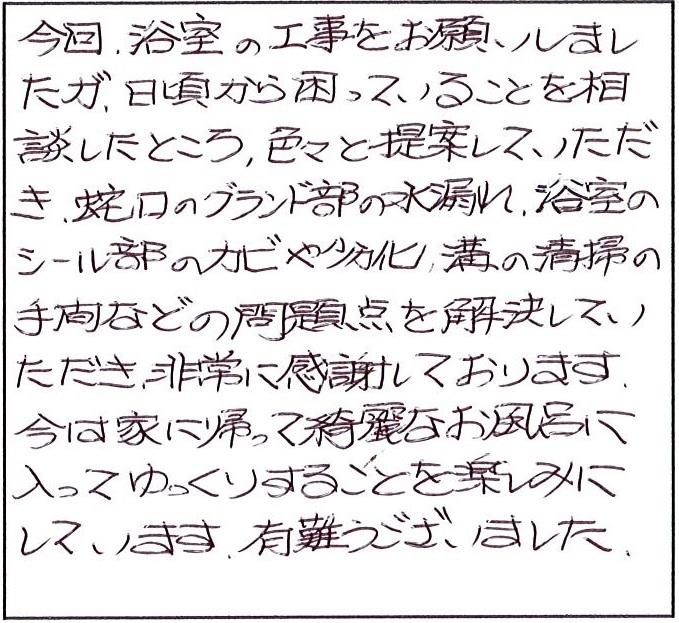 今回、浴室の工事をお願いしまし
たが、日頃から困っていることを相
談したところ、色々と提案していただ
き、蛇口のグランド部の水漏れ、浴室の
シール部のカビや劣化、溝の清掃の
手間などの問題点を解決してい
ただき、非常に感謝しております。
今は家に帰って綺麗なお風呂に
入ってゆっくりすることを楽しみに
しています。有難うございました。